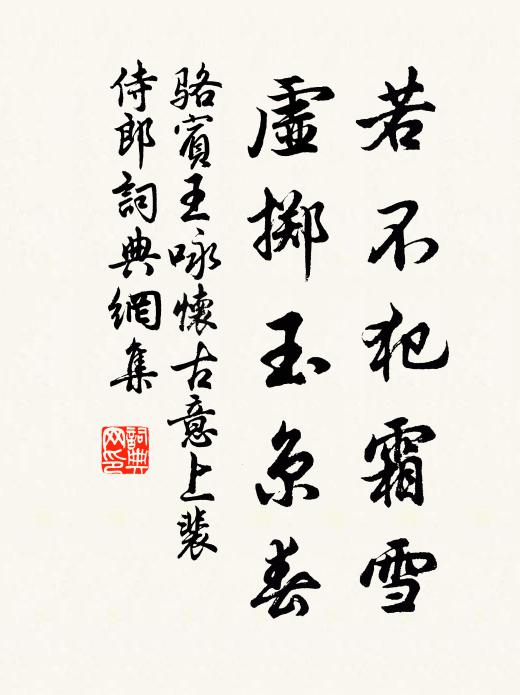 若不犯霜雪
虛擲玉京春
駱賓王咏懷古意上裴
侍郎詞典網集
詞典網印